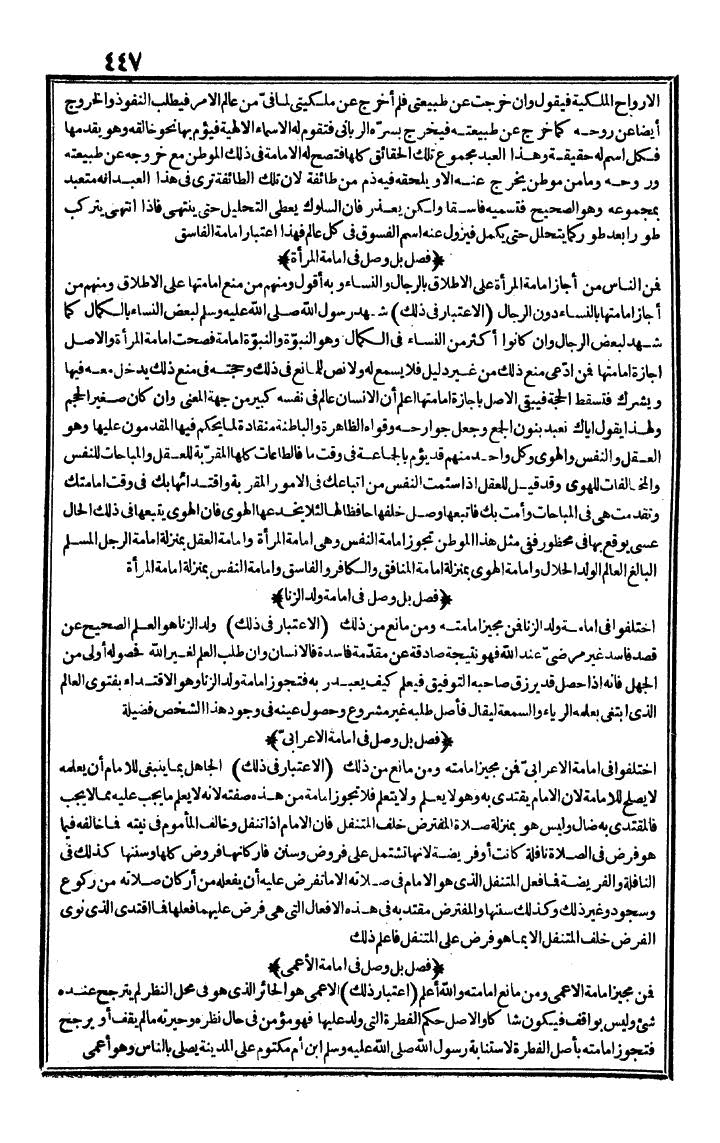 ٤٤٧
الارواح الملكية فيقول وان خرجت عن طبيعتى فلم أخرج عن ملكيتى لما فىّ من عالم الامر فيطلب النفوذ والخروج
أيضا عن روحه كما خرج عن طبيعته فيخرج بسرّه الربانى فتقوم له الاسماء الالهية فيؤم بها نحو خالقه وهو يقدمها
فكل اسم له حقيقة وهذا العبد مجموع تلك الحقائق كلها فتصح له الامامة فى ذلك الموطن مع خروجه عن طبيعته
وروحه وما من موطن يخرج عنه الا ويلحقه فيه ذم من طائفة لان تلك الطائفة ترى فى هذا العبد انه متعبد
بمجموعه وهو الصحيح فتسميه فاسقا ولكن يعذر فان السلوك يعطى التحليل حتى ينتهى فاذا انتهى يتركب
طورا بعد طور كما يتحلل حتى يكمل فيزول عنه اسم الفسوق فى كل عالم فهذا اعتبار امامة الفاسق
﴿فصل بل وصل فى امامة المرأة﴾
فمن الناس من أجاز امامة المرأة على الاطلاق بالرجال والنساء وبه أقول ومنهم من منع امامتها على الاطلاق ومنهم من
أجاز امامتها بالنساء دون الرجال (الاعتبار فى ذلك) شهد رسول الله صلى الله عليه وسلم لبعض النساء بالكمال كما
شهد لبعض الرجال وان كانوا أكثر من النساء فى الكمال وهو النبوّة والنبوّة امامة فصحت امامة المرأة والاصل
اجازة امامتها فمن ادّعى منع ذلك من غير دليل فلا يسمع له ولا نص للمانع فى ذلك وحجته فى منع ذلك يدخل معه فيها
ويشرك فتسقط الحجة فيبقى الاصل باجازة امامتها اعلم أن الانسان عالم فى نفسه كبير من جهة المعنى وان كان صغير الحجم
ولهذا يقول اياك نعبد بنون الجمع وجعل جوارحه وقواه الظاهرة والباطنة منقادة لما يحكم فيها المقدمون عليها وهو
العقل والنفس والهوى وكل واحد منهم قد يؤم بالجماعة فى وقت ما فالطاعات كلها المقرّبة للعقل والمباحات للنفس
والمخالفات للهوى وقد قيل للعقل اذا سئمت النفس من اتباعك فى الامور المقربة واقتدائها بك فى وقت امامتك
وتقدمت هى فى المباحات وأمت بك فاتبعها وصل خلفها حافظا لها لئلا يخدعها الهوى فان الهوى يتبعها فى ذلك الحال
عسى يوقع بها فى محظور ففى مثل هذا الموطن تجوز امامة النفس وهى امامة المرأة وامامة العقل بمنزلة امامة الرجل المسلم
البالغ العالم الولد الحلال وامامة الهوى بمنزلة امامة المنافق والكافر والفاسق وامامة النفس بمنزلة امامة المرأة
﴿فصل بل وصل فى امامة ولد الزنا﴾
اختلفوا فى امامة ولد الزنا فمن مجيز امامته ومن مانع من ذلك (الاعتبار فى ذلك) ولد الزنا هو العلم الصحيح عن
قصد فاسد غير مرضىّ عند الله فهو نتيجة صادقة عن مقدّمة فاسدة فالانسان وان طلب العلم لغير الله فحصوله أولى من
الجهل فانه اذا حصل قد يرزق صاحبه التوفيق فيعلم كيف يعبد ربه فتجوز امامة ولد الزنا وهو الاقتداء بفتوى العالم
الذى ابتغى بعلمه الرياء والسمعة ليقال فأصل طلبه غير مشروع وحصول عينه فى وجود هذا الشخص فضيلة
﴿فصل بل وصل فى امامة الاعرابىّ﴾
اختلفوا فى امامة الاعرابىّ فمن مجيز امامته ومن مانع من ذلك (الاعتبار فى ذلك) الجاهل بما ينبغى للامام أن يعلمه
لا يصلح للامامة لان الامام يقتدى به وهو لا يعلم ولا يتعلم فلا تجوز امامة من هذه صفته لانه لا يعلم ما يجب عليه مما لا يجب
فالمقتدى به ضال وليس هو بمنزلة صلاة المفترض خلف المتنفل فان الامام اذا تنفل وخالف المأموم فى نيته فما خالفه فيما
هو فرض فى الصلاة نافلة كانت أو فريضة لانها تشتمل على فروض وسنن فاركانها فروض كلها وسننها كذلك فى
النافلة والفريضة فما فعل المتنفل الذى هو الامام فى صلاته الا ما تفرض عليه أن يفعله من أركان صلاته من ركوع
وسجود وغير ذلك وكذلك سننها والمفترض مقتد به فى هذه الافعال التى هى فرض عليهما فعلها فما اقتدى الذى نوى
الفرض خلف المتنفل الا بما هو فرض على المتنفل فاعلم ذلك
﴿فصل بل وصل فى امامة الأعمى﴾
فمن مجيز امامة الاعمى ومن مانع امامته والله أعلم (اعتبار ذلك) الاعمى هو الحائر الذى هو فى محل النظر لم يترجح عنده
شئ وليس بواقف فيكون شاكا والاصل حكم الفطرة التى ولد عليها فهو مؤمن فى حال نظره وحيرته ما لم يقف أو يرجح
فتجوز امامته بأصل الفطرة لاستنابة رسول الله صلى الله عليه وسلم ابن أم مكتوم على المدينة يصلى بالناس وهو أعمى